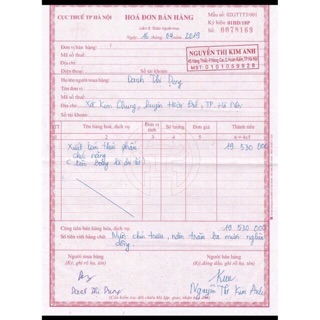 CỤC THUẾ TP HÀ NỘI
HOÁ ĐƠN BÁN HÀNG
Mẫu số: 02GTTT3/001
Ký hiệu:
Số: 0078169
Liên 2: Giao người mua
Ngày 16 tháng 04 năm 2019
Đơn vị bán hàng:
Mã số thuế:
Địa chỉ:
Số tài khoản:
Điện thoại:
NGUYỄN THỊ KIM ANH
MST: 0101069928
Họ tên người mua hàng: Danh Thị Dung
Đơn vị:
Mã số thuế:
Địa chỉ: Xã Kim Chung, Huyện Hoài Đức, TP. Hà Nội
Số tài khoản:
STT
Tên hàng hoá, dịch vụ
Đơn vị tính
Số lượng
Đơn giá
Thành tiền
1 2 3 4 5
Xuất bán thực phẩm 19 530 000
chức năng
Cộng tiền bán hàng hoá, dịch vụ: 19 530 000
Số tiền viết bằng chữ: Mười chín triệu, năm trăm ba mươi nghìn
đồng.
Người mua hàng
(Ký, ghi rõ họ, tên)
Người bán hàng
(Ký, đóng dấu, ghi rõ họ, tên)
Danh Thị Dung
Nguyễn Thị Kim Anh